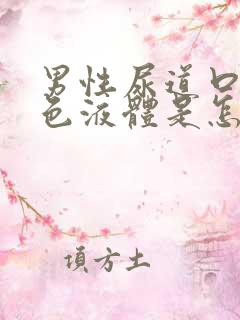 男性尿道口
色液體是怎
項方土